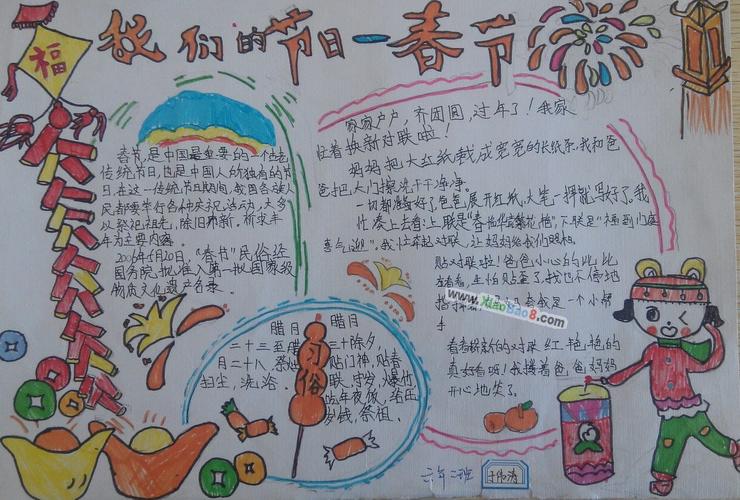 我们的节日一春节
福
春节,是中国最重要的一个
传统节日,也是中国人的独有的节
日,在这一传统节日期间,我国各族人
民都要举行各种庆祝活动,大多
以祭祀祖先,除旧布新,祈求丰
年为主要内容。
2006年5月20日,"春节"民俗经
国务院批准入第一批国家级
物质文化遗产名录
腊月
二十三至腊
月二十八 祭灶
扫尘,洗浴。
习俗
腊月
三十除夕,
贴门神,贴春
联,守岁,爆竹
吃年夜饭,给压
岁钱,祭祖。
家家户户,齐团圆,过年了!我家
忙着换新对联啦!
妈妈把大红纸裁成宽宽的长纸条,我和爸
爸把大门擦洗干干净净。
一切都准备好了,爸爸展开红纸,大笔一挥就写好了,我
忙凑上去看:上联是"春
喜气",我忙举起对联,让妈妈给我们照相。
贴对联啦!爸爸小心的比比
看看,生怕贴歪了,我也不停地
是一个小帮
手
看着崭新的对联红艳艳的
真好看啊!我搂着爸爸妈妈
开心地笑了。
www.xiaobao8.com
六年二班